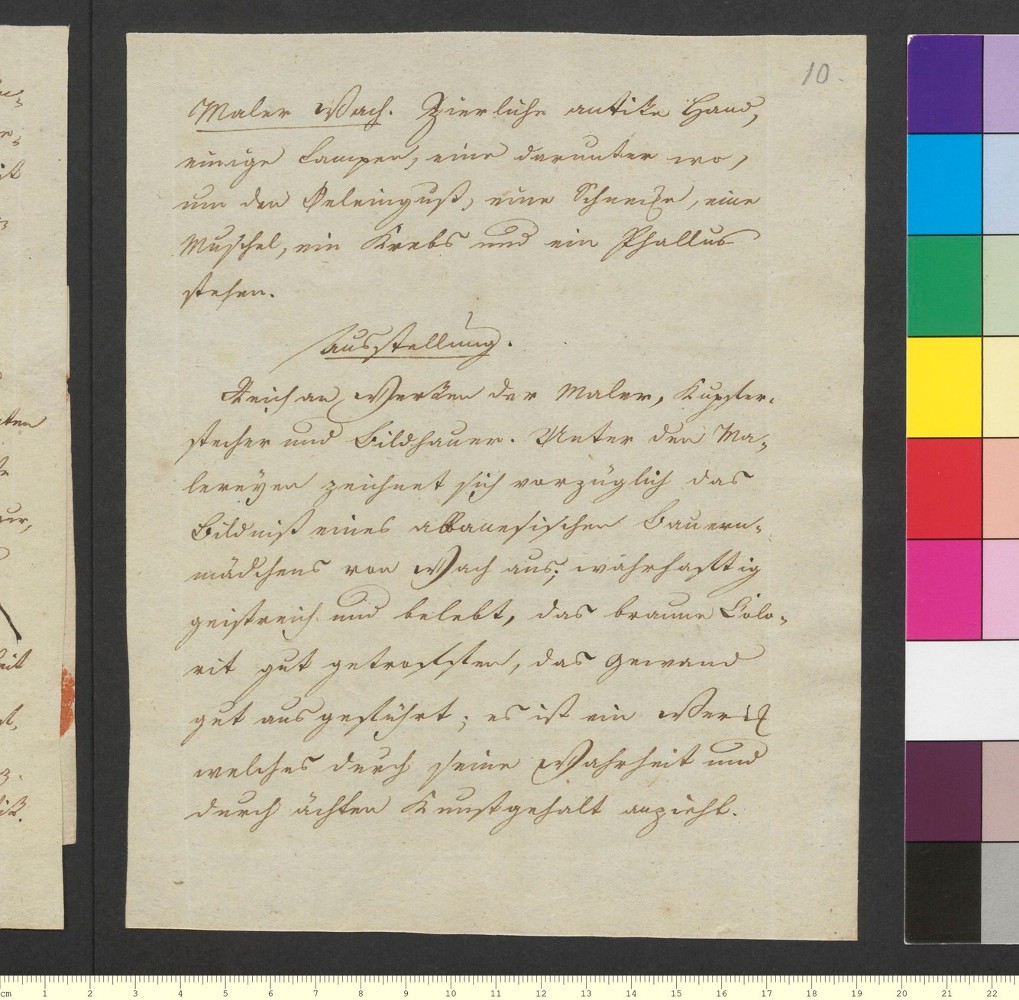 10.
Maler Wach. Zierliche antike Hand,
einige Lampen, eine darunter wo,
um den Oeleinguß, eine Schnecke, eine
Muschel, ein Krebs und ein Phallus
stehen.
Ausstellung.
Reich an Werken der Maler, Kupfer-
stecher und Bildhauer. Unter den Ma-
lereyen zeichnet sich vorzüglich das
Bildniß eines albanesischen Bauern-
mädchens von Wach aus; wahrhafftig
geistreich und belebt, das braune Colo-
rit gut getroffen, das Gewand
gut ausgeführt; es ist ein Werk
welches durch seine Wahrheit und
durch ächten Kunstgehalt anzieht.